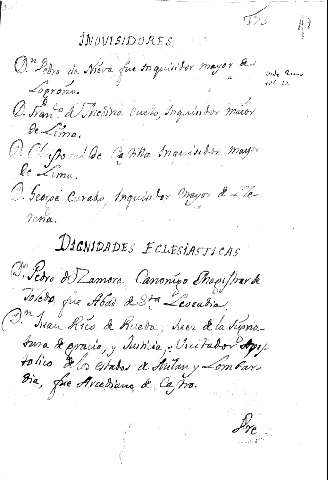 INQVISIDORES
Dn Pedro de Nieva fue Inquisidor mayor de
Logroño.
D. Franco de Medina Cueto, Inquisidor maior
de Lima.
D. de Castilla Inquisidor mayor
de Lima.
D. George Curado, Inquisidor mayor de
DIGNIDADES ECLESIASTICAS
Dn Pedro de Zamora Canonigo Magistral de
Toledo fue Abad de Sta Leocadia.
Dn Juan Rico de Rueda, Juez de la Signa-
tura de gracia, y Justicia, Visitador Apos-
tolico de los estados de Milan y Lombar-
dia, fue Arcediano de Castro.
Pre